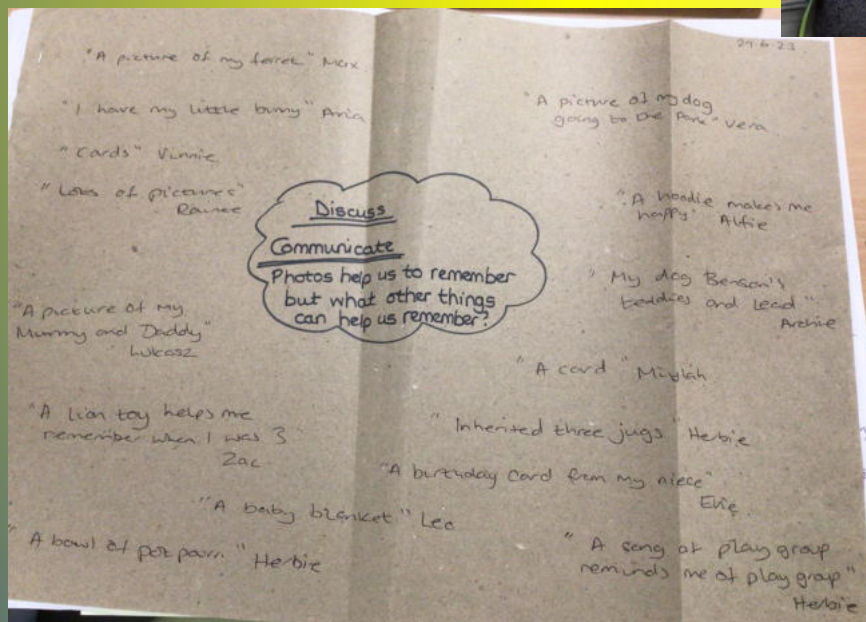 27.6.23
"A picture of my ferret" Max
"I have my little bunny" Aria
"Cards" Vinnie
"Lots of pictures"
"A picture of my
Mummy and Daddy"
Lukasz
"A lion toy helps me
remember when I was 3
Zac
"A baby blanket" Leo
"A bowl of pot pourri" Herbie
Discuss
Communicate
Photos help us to remember
but what other things
can help us remember?
"A picture of my dog
going to the Park" Vera
"A hoodie makes me
happy" Alfie
"My dog Benson's
teddies and lead"
Archie
"A card"
"Inherited three jugs" Herbie
"A birthday card from my niece"
Evie
"A song at play group
reminds me of play group"
Herbie